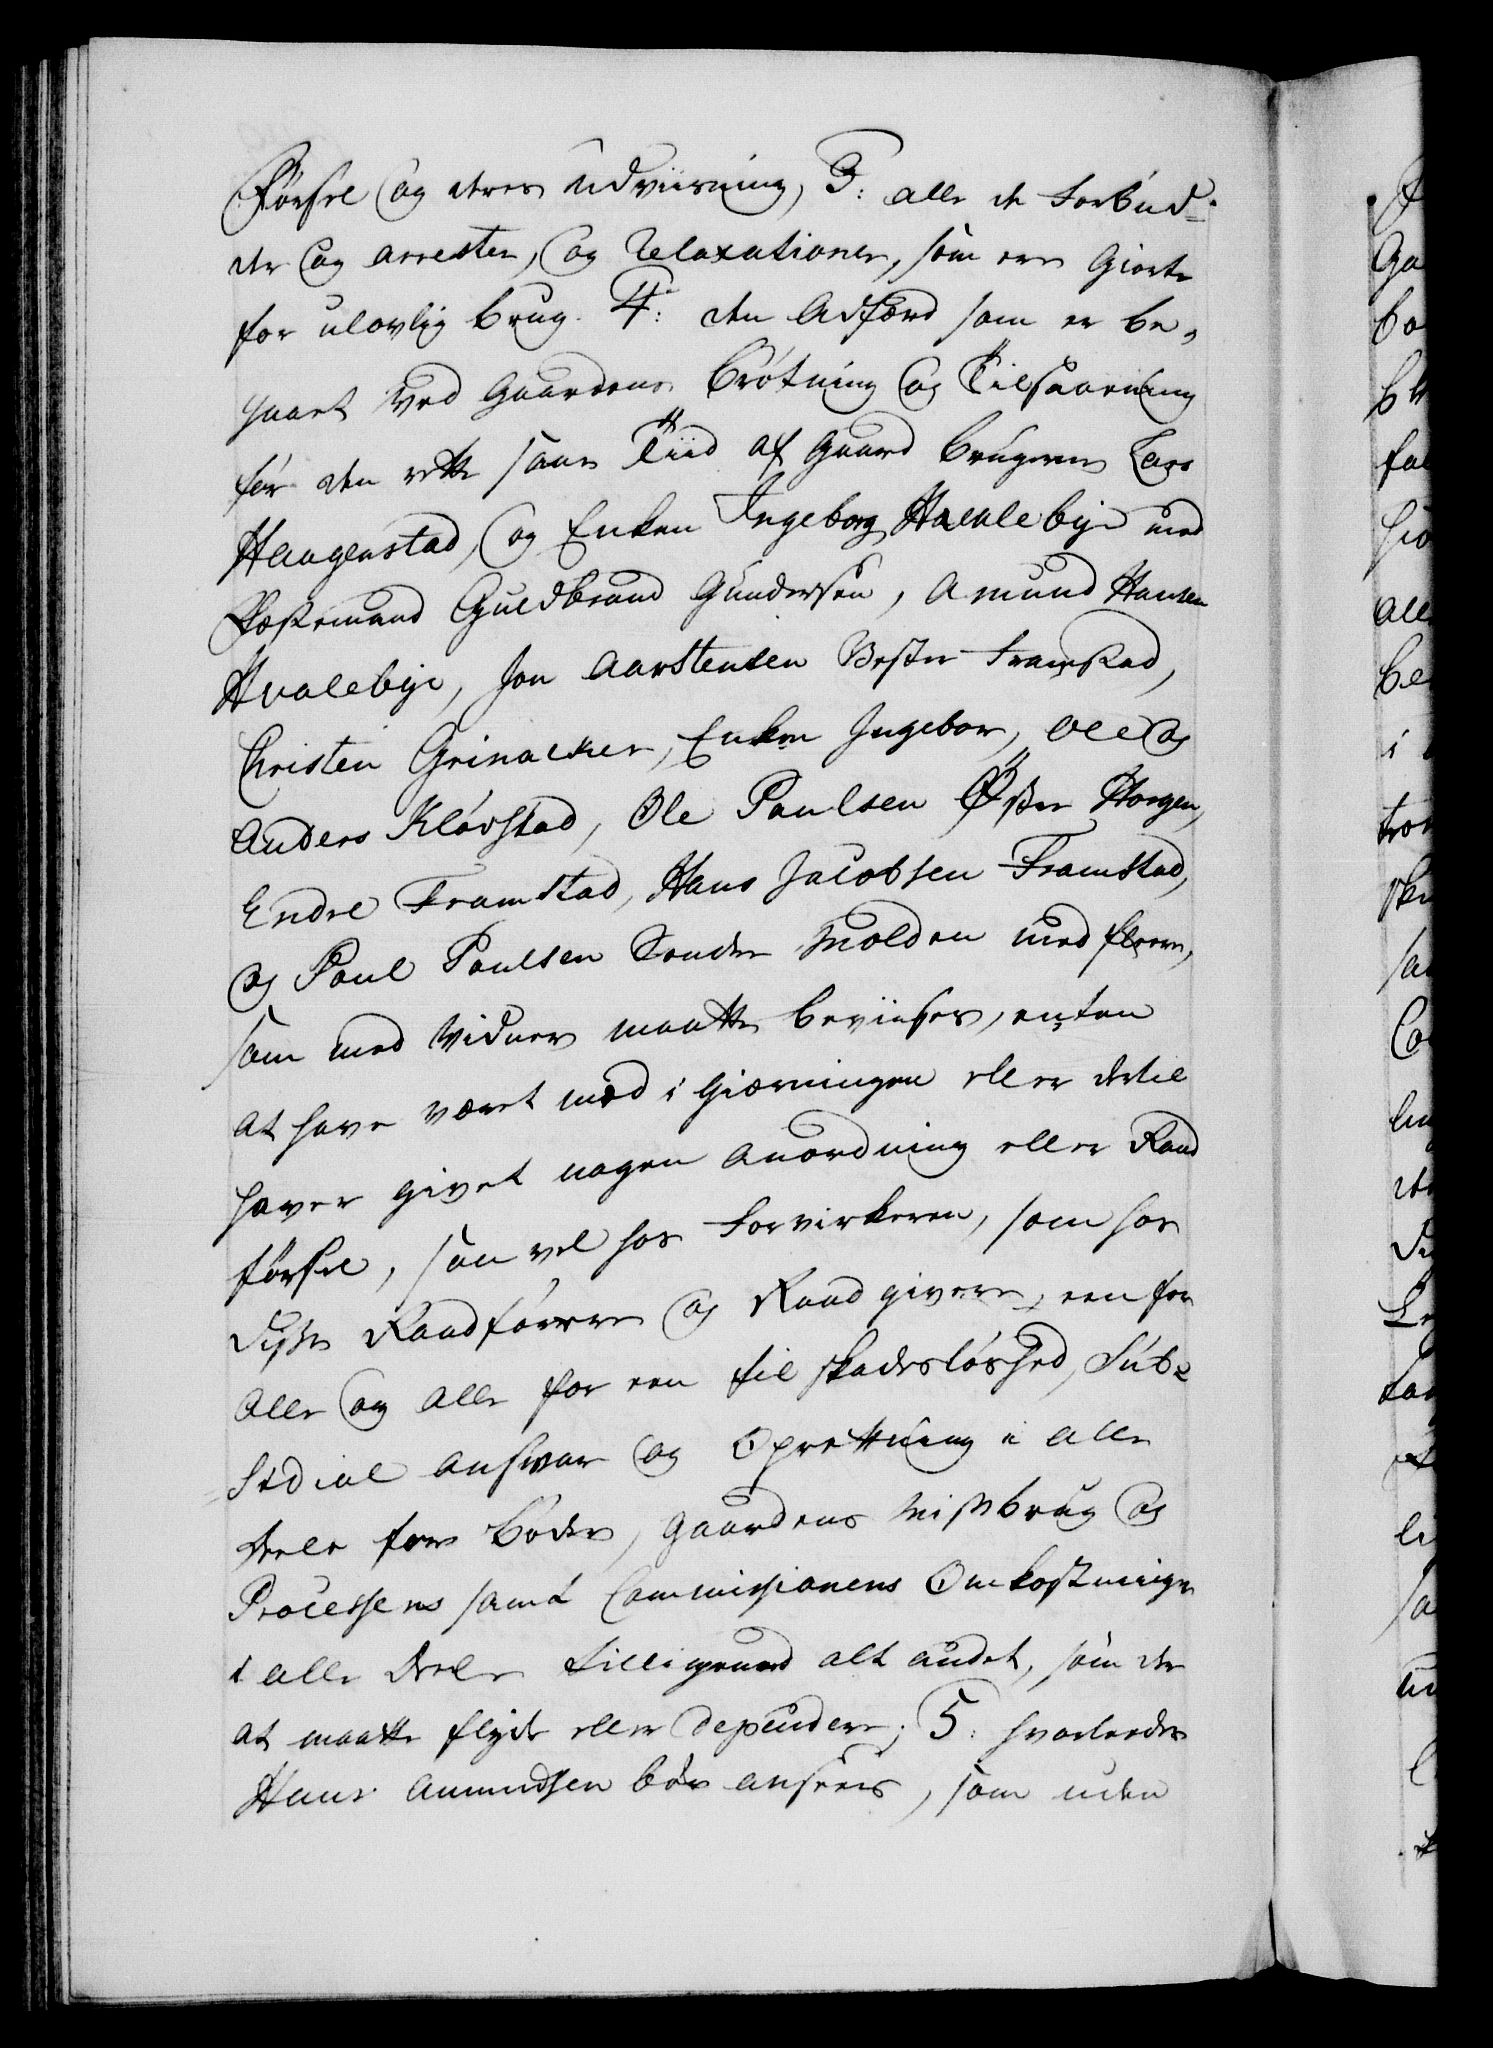 Førsel og deres Udviisning, 3: alle de Forbud-
der og arrester, og Relaxationer, som ere Giorte
for ulovlig brug. 4: den Adfærd som er be-
gaaet ved Gaardens Brøtning og Tilsaaening
før den rette saae Tiid af Gaard brugeren Lars
Haagenstad, og Enken Ingeborg Hvalebye med
Fæstemand Guldbrand Gundersen, Amund Hansen
Hvalebye, Jon Aarstensen Vester Framstad,
Christen Grinacker, Enken Ingebor, Ole og
Anders Kløvstad, Ole Paulsen Øster Horgen,
Endre Framstad, Hans Jacobsen Framstad,
og Paul Paulsen Sønder Molden med fleere,
som med Vidner maatte beviises, enten
at have været med i Giærningen eller dertil
haver givet nogen Anordning eller Raad
førsel, saa vel hos Forvirkeren, som hos
disse Raadførere og Raad givere, een for
alle og alle for een til skadesløshed, Sub-
sidial Ansvar og Oprettning i alle
Deele for Bøder, Gaardens Missbrug og
Processens samt Commissionens Omkostninger
i alle Deele tilligemed alt andet, som der
af maatte flyde eller dependere; 5: hvorleedes
Hans Amundsen bør ansees, som uden